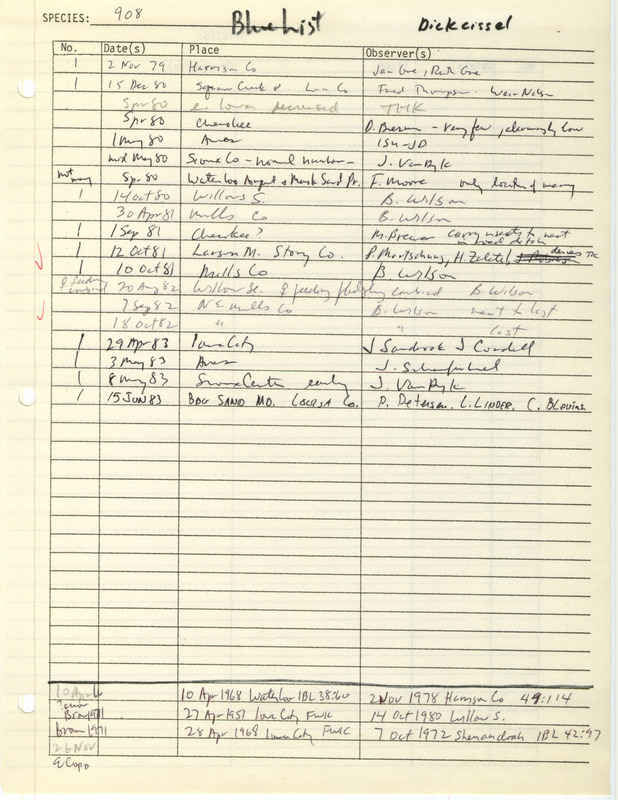 SPECIES: 908 Blue List Dickcissel
No. Date(s) Place Observer(s)
1 2 Nov 79 Harrison Co
1 15 Dec 80 Fred Thompson
Spr 80 e. Iowa decreased THK
Spr 80 Cherokee D. Bierman - very few, alarmingly low
1 May 80 Ames ISU-JD
mid May 80 Sioux Co - normal number - J. Van Dyk
not many Spr 80 Waterloo Airport & Mark Sand Pr. F. Moore only location of many
1 14 Oct 80 Willow S. B. Wilson
30 Apr 81 Mills Co B. Wilson
1 1 Sep 81 Cherokee? M. Brewer
1 12 Oct 81 Larson M. Story Co. P. Martsching, H. Zaletel
1 10 Oct 81 Mills Co B Wilson
20 Aug 82 Willow Sl. ♀ feeding fledgling cowbird B. Wilson
7 Sep 82 N E Mills Co B. Wilson next to last
18 Oct 82 " " last
1 29 Apr 83 Iowa City J Sandrock J Cordell
1 3 May 83 Ames J.
1 8 May 83 Sioux Center early J. Van Dyk
1 15 Jun 83 Big Sand Md. Louisa Co. P. Petersen, L. Linder, C. Blevins.
10 Apr 10 Apr 1968 Waterloo IBL 38:60 2 Nov 1978 Harrison Co 49:114
Brown 1971 27 Apr 1951 Iowa City FWK 14 Oct 1980 Willow S.
Brown 1971 28 Apr 1968 Iowa City FWK 7 Oct 1972 Shenandoah IBL 42:97
26 Nov